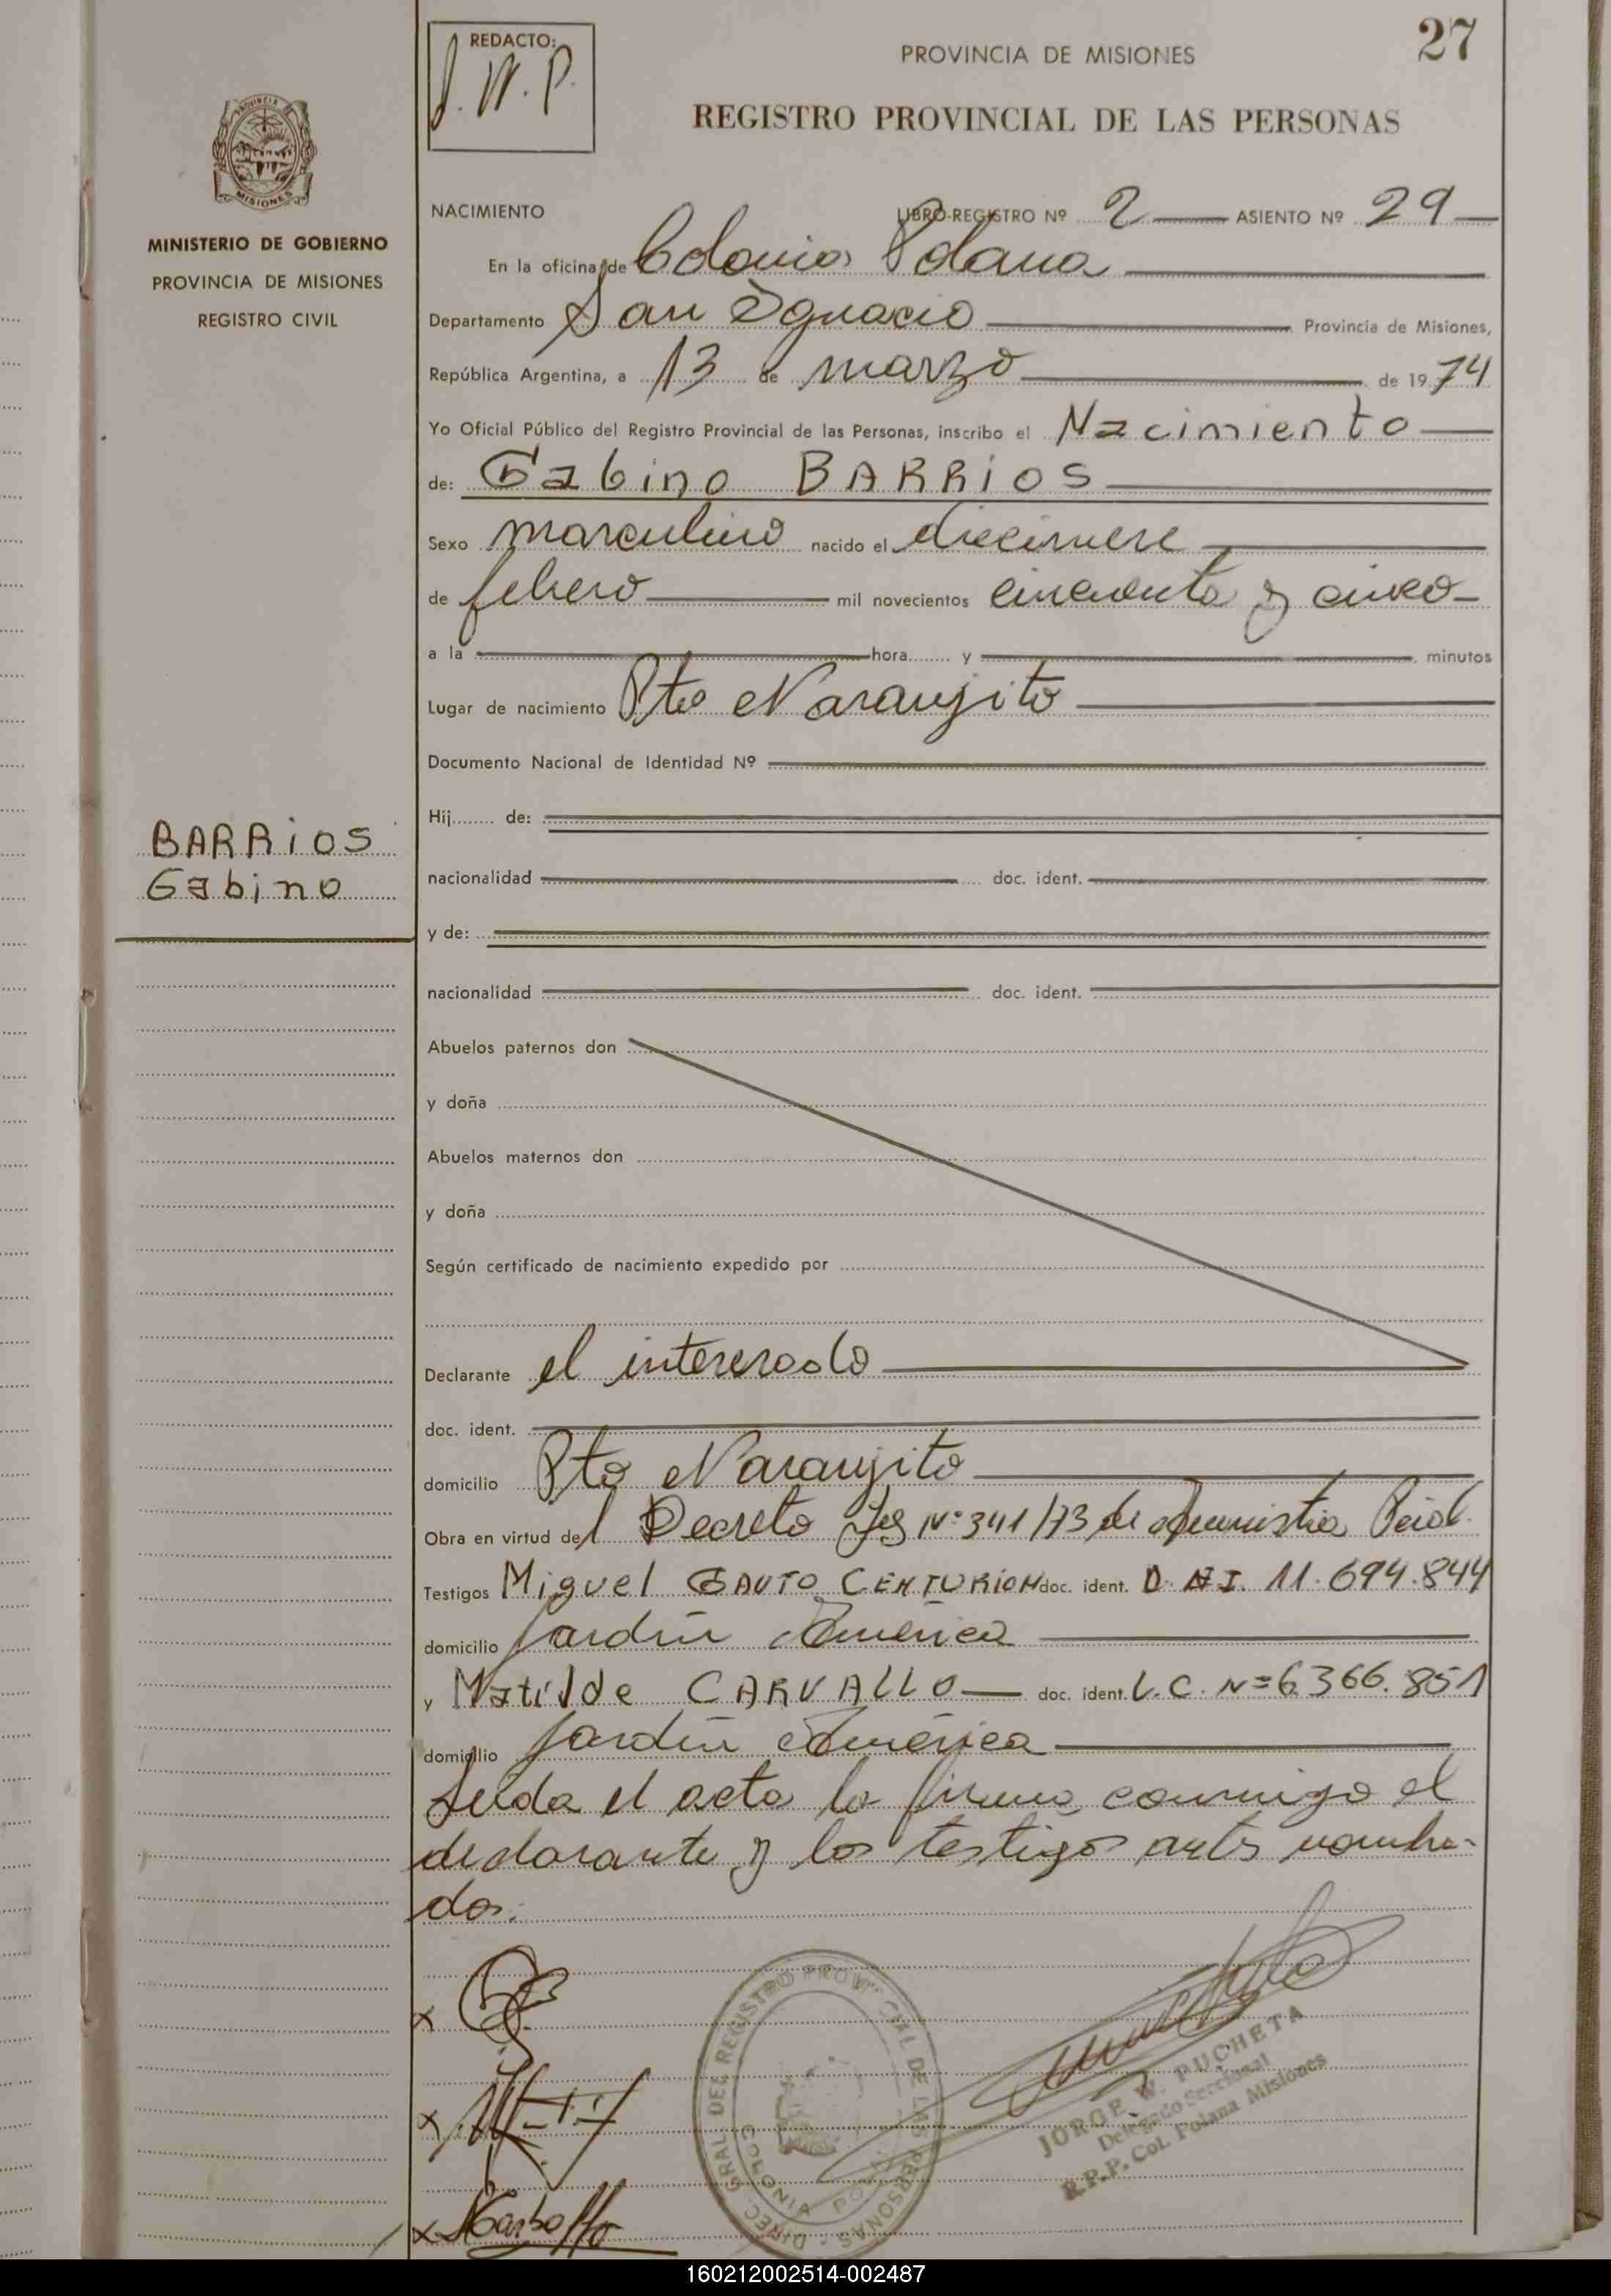 27
REDACTO:
J. W. P.
PROVINCIA DE MISIONES
REGISTRO PROVINCIAL DE LAS PERSONAS
MISIONES
MINISTERIO DE GOBIERNO
PROVINCIA DE MISIONES
REGISTRO CIVIL
NACIMIENTO LIBRO-REGISTRO Nº 2 ASIENTO Nº 29
En la oficina de Colonia Polana
Departamento San Ignacio Provincia de Misiones,
República Argentina, a 13 de marzo de 1974
Yo Oficial Público del Registro Provincial de las Personas, inscribo el Nacimiento
de: Gabino BARRIOS
Sexo masculino nacido el
de febrero mil novecientos cincuenta y cinco
a la hora y minutos
Lugar de nacimiento Pto Naranjito
Documento Nacional de Identidad Nº
Hij de:
BARRIOS
Gabino
nacionalidad doc. ident.
y de:
nacionalidad doc. ident.
Abuelos paternos don
y doña
Abuelos maternos don
y doña
Según certificado de nacimiento expedido por
Declarante el interesado
doc. ident.
domicilio Pto Naranjito
Obra en virtud del Decreto Ley Nº 341/73 de
Testigos Miguel GAUTO CENTURION doc. ident. D.N.I. 11.694.844
domicilio Jardín América
y Matilde CARVALLO doc. ident. L.C. Nº 6.366.851
domicilio Jardín América
Leída el acta la firma conmigo el
declarante y los testigos antes nombra-
dos.
DIREC. GRAL. DEL REGISTRO PROVINCIAL DE LAS PERSONAS
COLONIA POLANA
JORGE W. PUCHETA
Delegado Seccional
R.P.P. Col. Polana Misiones
160212002514-002487